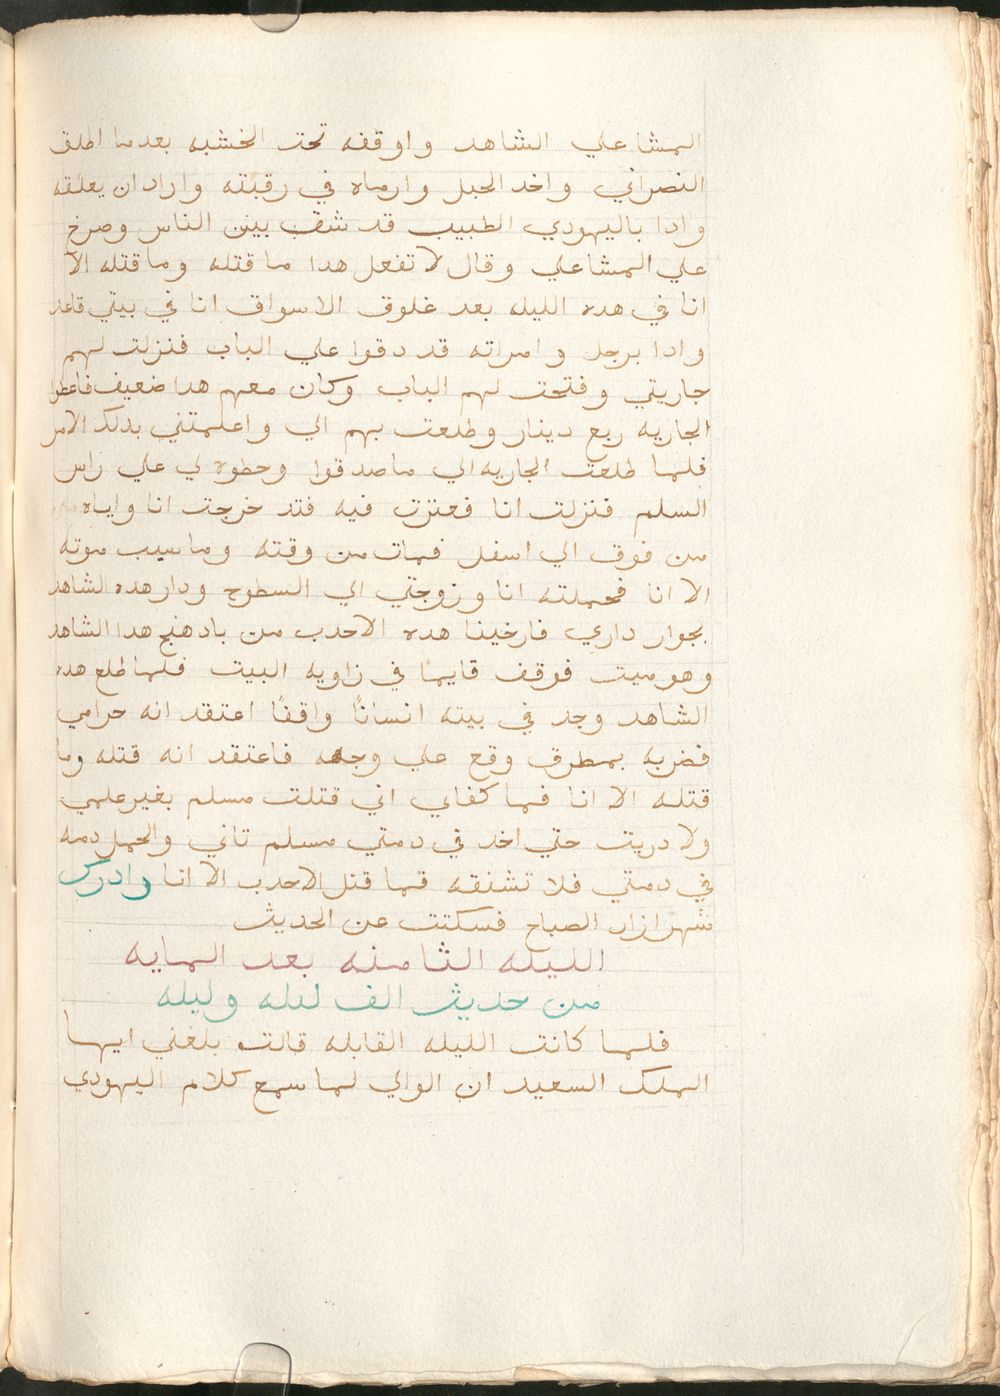 المشاعلي الشاهد واوقفه تحت الخشبه بعدما اطلق
النصراني واخد الحبل وارماه في رقبته واراد ان يعلقه
وادا باليهودي الطبيب قد شق بين الناس وصرخ
علي المشاعلي وقال لا تفعل هدا ما قتله وما قتله الا
انا في هده الليله بعد غلوق الاسواق انا في بيتي قاعد
وادا برجل وامراته قد دقوا علي الباب فنزلت لهم
جاريتي وفتحت لهم الباب وكان معهم هدا ضعيف فاعطوا
الجاريه ربع دينار وطلعت بهم الي واعلمتني بدلك الامر
فلما طلعت الجاريه الي ما صدقوا وحطوه لي علي راس
السلم فنزلت انا فعترت فيه فتد خرجت انا واياه
من فوق الي اسفل فمات من وقته وما سبب موته
الا انا فحملته انا وزوجتي الي السطوح ودار هده الشاهد
بجوار داري فارخينا هده الاحدب من بادهنج هدا الشاهد
وهو ميت فوقف قايمًا في زاويه البيت فلما طلع هده
الشاهد وجد في بيته انسانًا واقفًا اعتقد انه حرامي
فضربه بمطرق وقع علي وجهه فاعتقد انه قتله وما
قتله الا انا فما كفاي اني قتلت مسلم بغير علمي
ولا دريت حتي اخد في دمتي مسلم تاني والحمل دمه
في دمتي فلا تشنقه فما قتل الاحدب الا انا وادرك
شهرازاد الصباح فسكتت عن الحديث
الليله الثامنه بعد المايه
من حديث الف ليله وليله
فلما كانت الليله القابله قالت بلغني ايها
الملك السعيد ان الوالي لما سمع كلام اليهودي